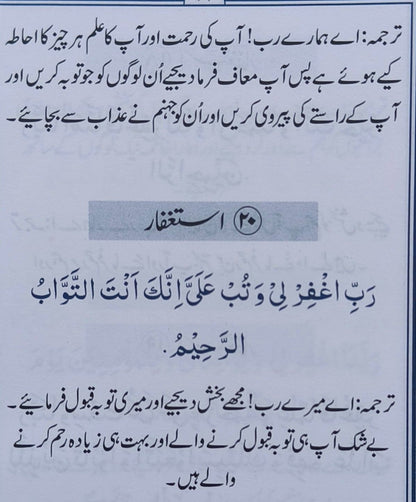 ترجمہ: اے ہمارے رب! آپ کی رحمت اور آپ کا علم ہر چیز کا احاطہ
کیے ہوئے ہے پس آپ معاف فرما دیجیے اُن لوگوں کو جو توبہ کریں اور
آپ کے راستے کی پیروی کریں اور اُن کو جہنم نے عذاب سے بچائیے۔
۲۰ استغفار
رَبِّ اغْفِرْ لِیْ وَتُبْ عَلَیَّ اِنَّكَ اَنْتَ التَّوَّابُ
الرَّحِیْمُ.
ترجمہ: اے میرے رب! مجھے بخش دیجیے اور میری توبہ قبول فرمائیے۔
بے شک آپ ہی توبہ قبول کرنے والے اور بہت ہی زیادہ رحم کرنے
والے ہیں۔